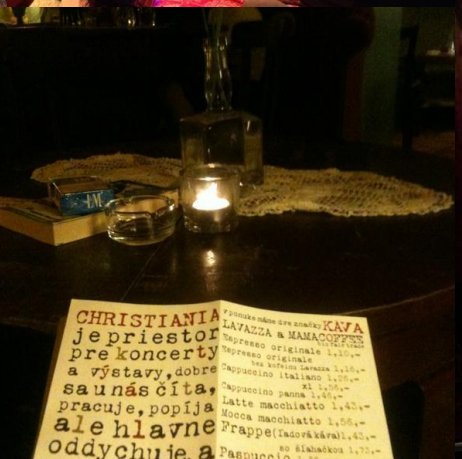 LM
CHRISTIANIA
je priestor
pre koncerty
a výstavy, dobre
sa u nás číta,
pracuje, popíja
ale hlavne
oddychuje a
v ponuke máme dve značky KÁVA
LAVAZZA a MAMACOFFEE
Espresso originale 1,10,-
Espresso originale
bez kofeinu Lavazza 1,16,-
Cappuccino italiano 1,26,-
xl 1,56,-
Cappuccino panna 1,46,-
Latte macchiato 1,43,-
Mocca macchiato 1,56,-
Frappe(ľadová káva)1,43,-
so šľahačkou 1,73,-
Paspuccio